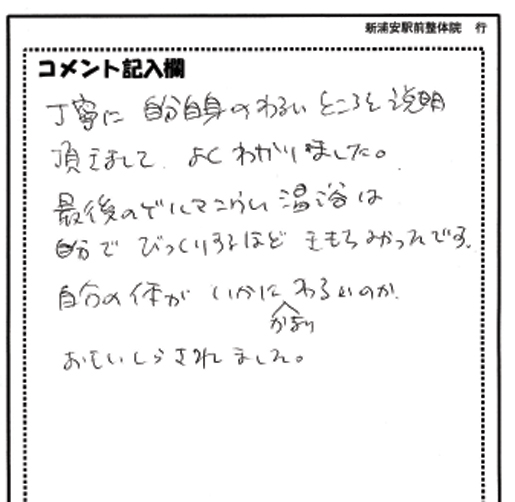 新浦安駅前整体院 行
コメント記入欄
丁寧に 自分自身のわるい ところを 説明
頂きまして よくわかりました。
最後の 温浴は
自分で びっくりするほど きもちよかったです。
自分の体が いかに わるいのか
かなり
おもいしらされました。